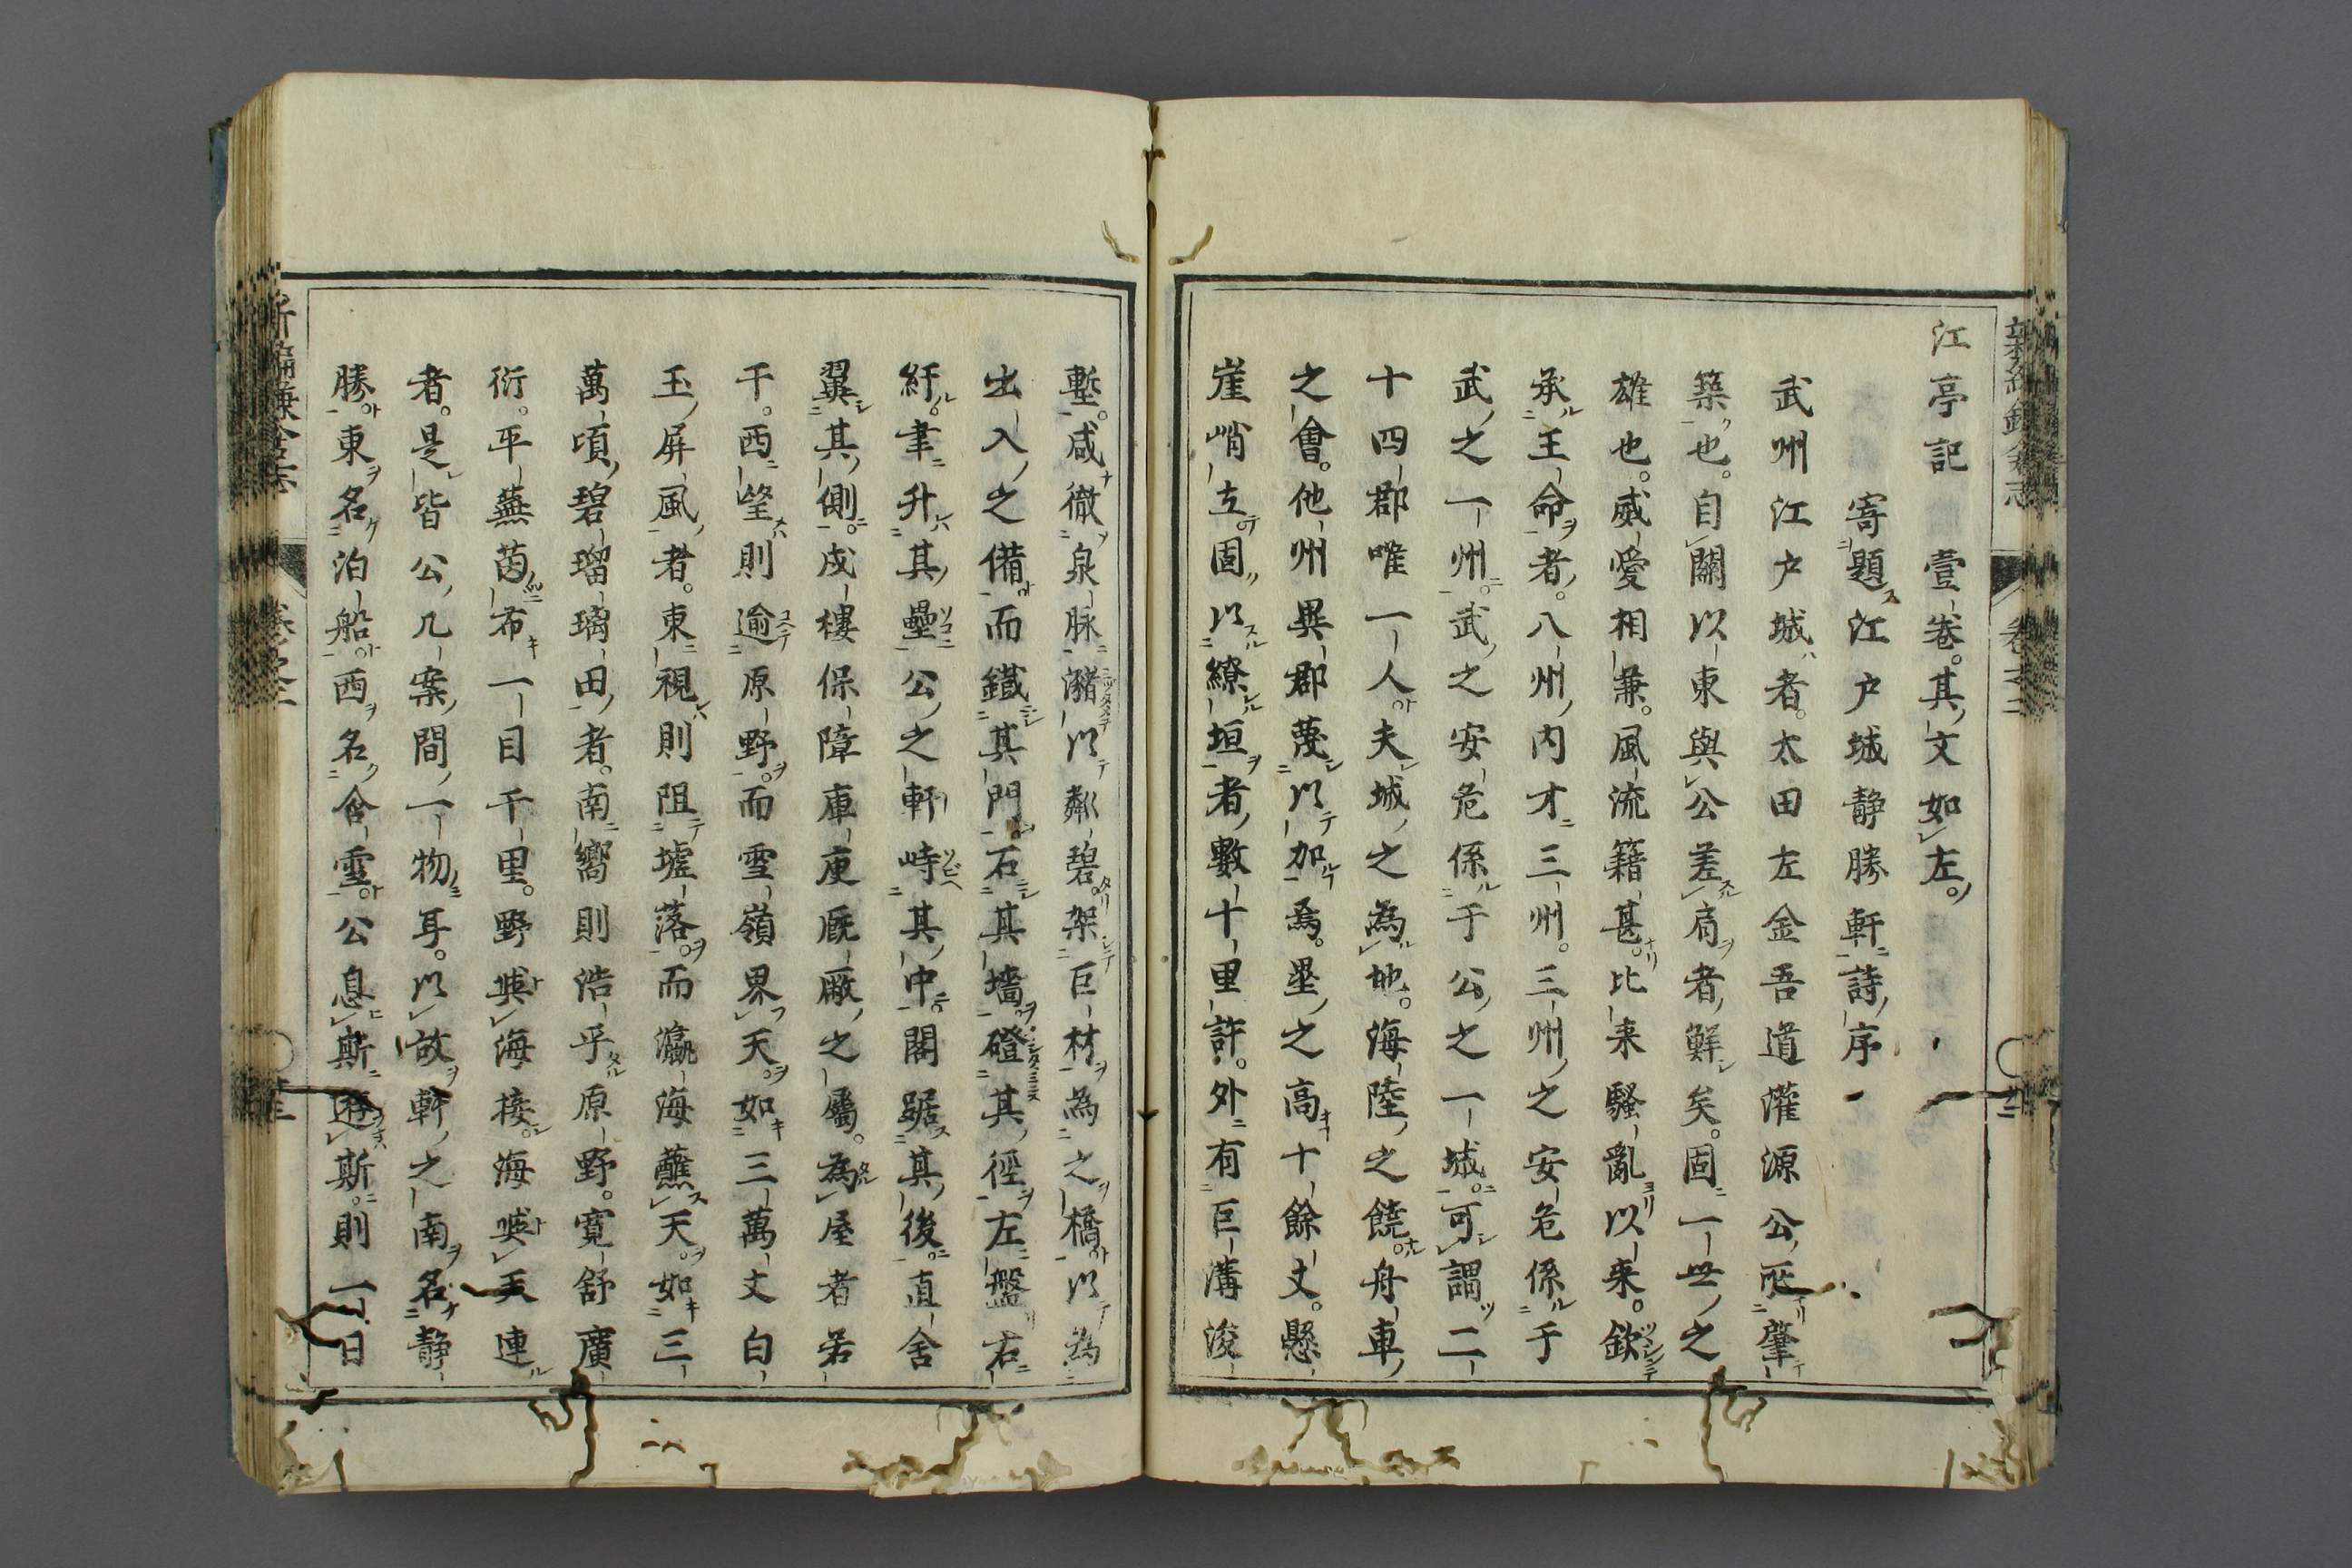 江亭記　壹巻。其文如左。
寄題江戸城静勝軒詩序
武州江戸城者。太田左金吾道灌源公所肇
築也。自關以東與公差肩者鮮矣。固一世之
雄也。威愛相兼。風流籍甚。比来騷亂以来。欽
承王命者。八州内才三州。三州之安危係于
武之一州。武之安危係于公之一城。可謂二
十四郡唯一人。夫城之為地。海陸之饒舟車
之會。他州異郡蔑以加焉。壘之高十餘丈。懸
崖峭立。固以繚垣者數十里許。外有巨溝浚
塹。咸徹泉脉。瀦以粼碧。架巨材為之橋。以為
出入之備。而鐵其門。石其墻。磴其徑。左盤右
紆。聿升其壘。公之軒峙其中。閣踞其後。直舎
翼其側。戍樓保障庫庾厩廠之屬。為屋者若
干。西望則逾原野。而雪嶺界天。如三萬丈白
玉屏風者。東視則阻墟落。而瀛海蘸天。如三
萬頃碧瑠璃田者。南嚮則浩乎原野。寛舒廣
衍。平蕪茵布一目千里。野與海接。海與天連
者。是皆公几案間一物耳。以故軒之南名静
勝。東名泊船。西名含雪。公息斯遊斯。則一日
新編鎌倉志　巻之二